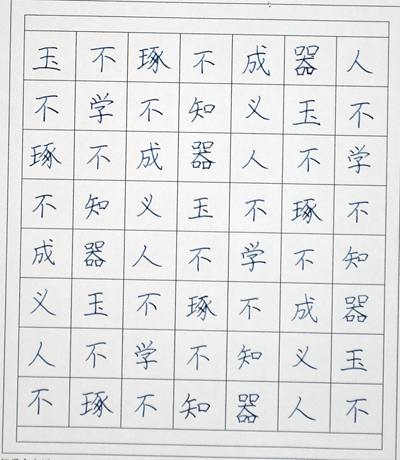 玉不琢不成器人
不学不知义玉不
琢不成器人不学
不知义玉不琢不
成器人不学不知
义玉不琢不成器
人不学不知义玉
不琢不知器人不